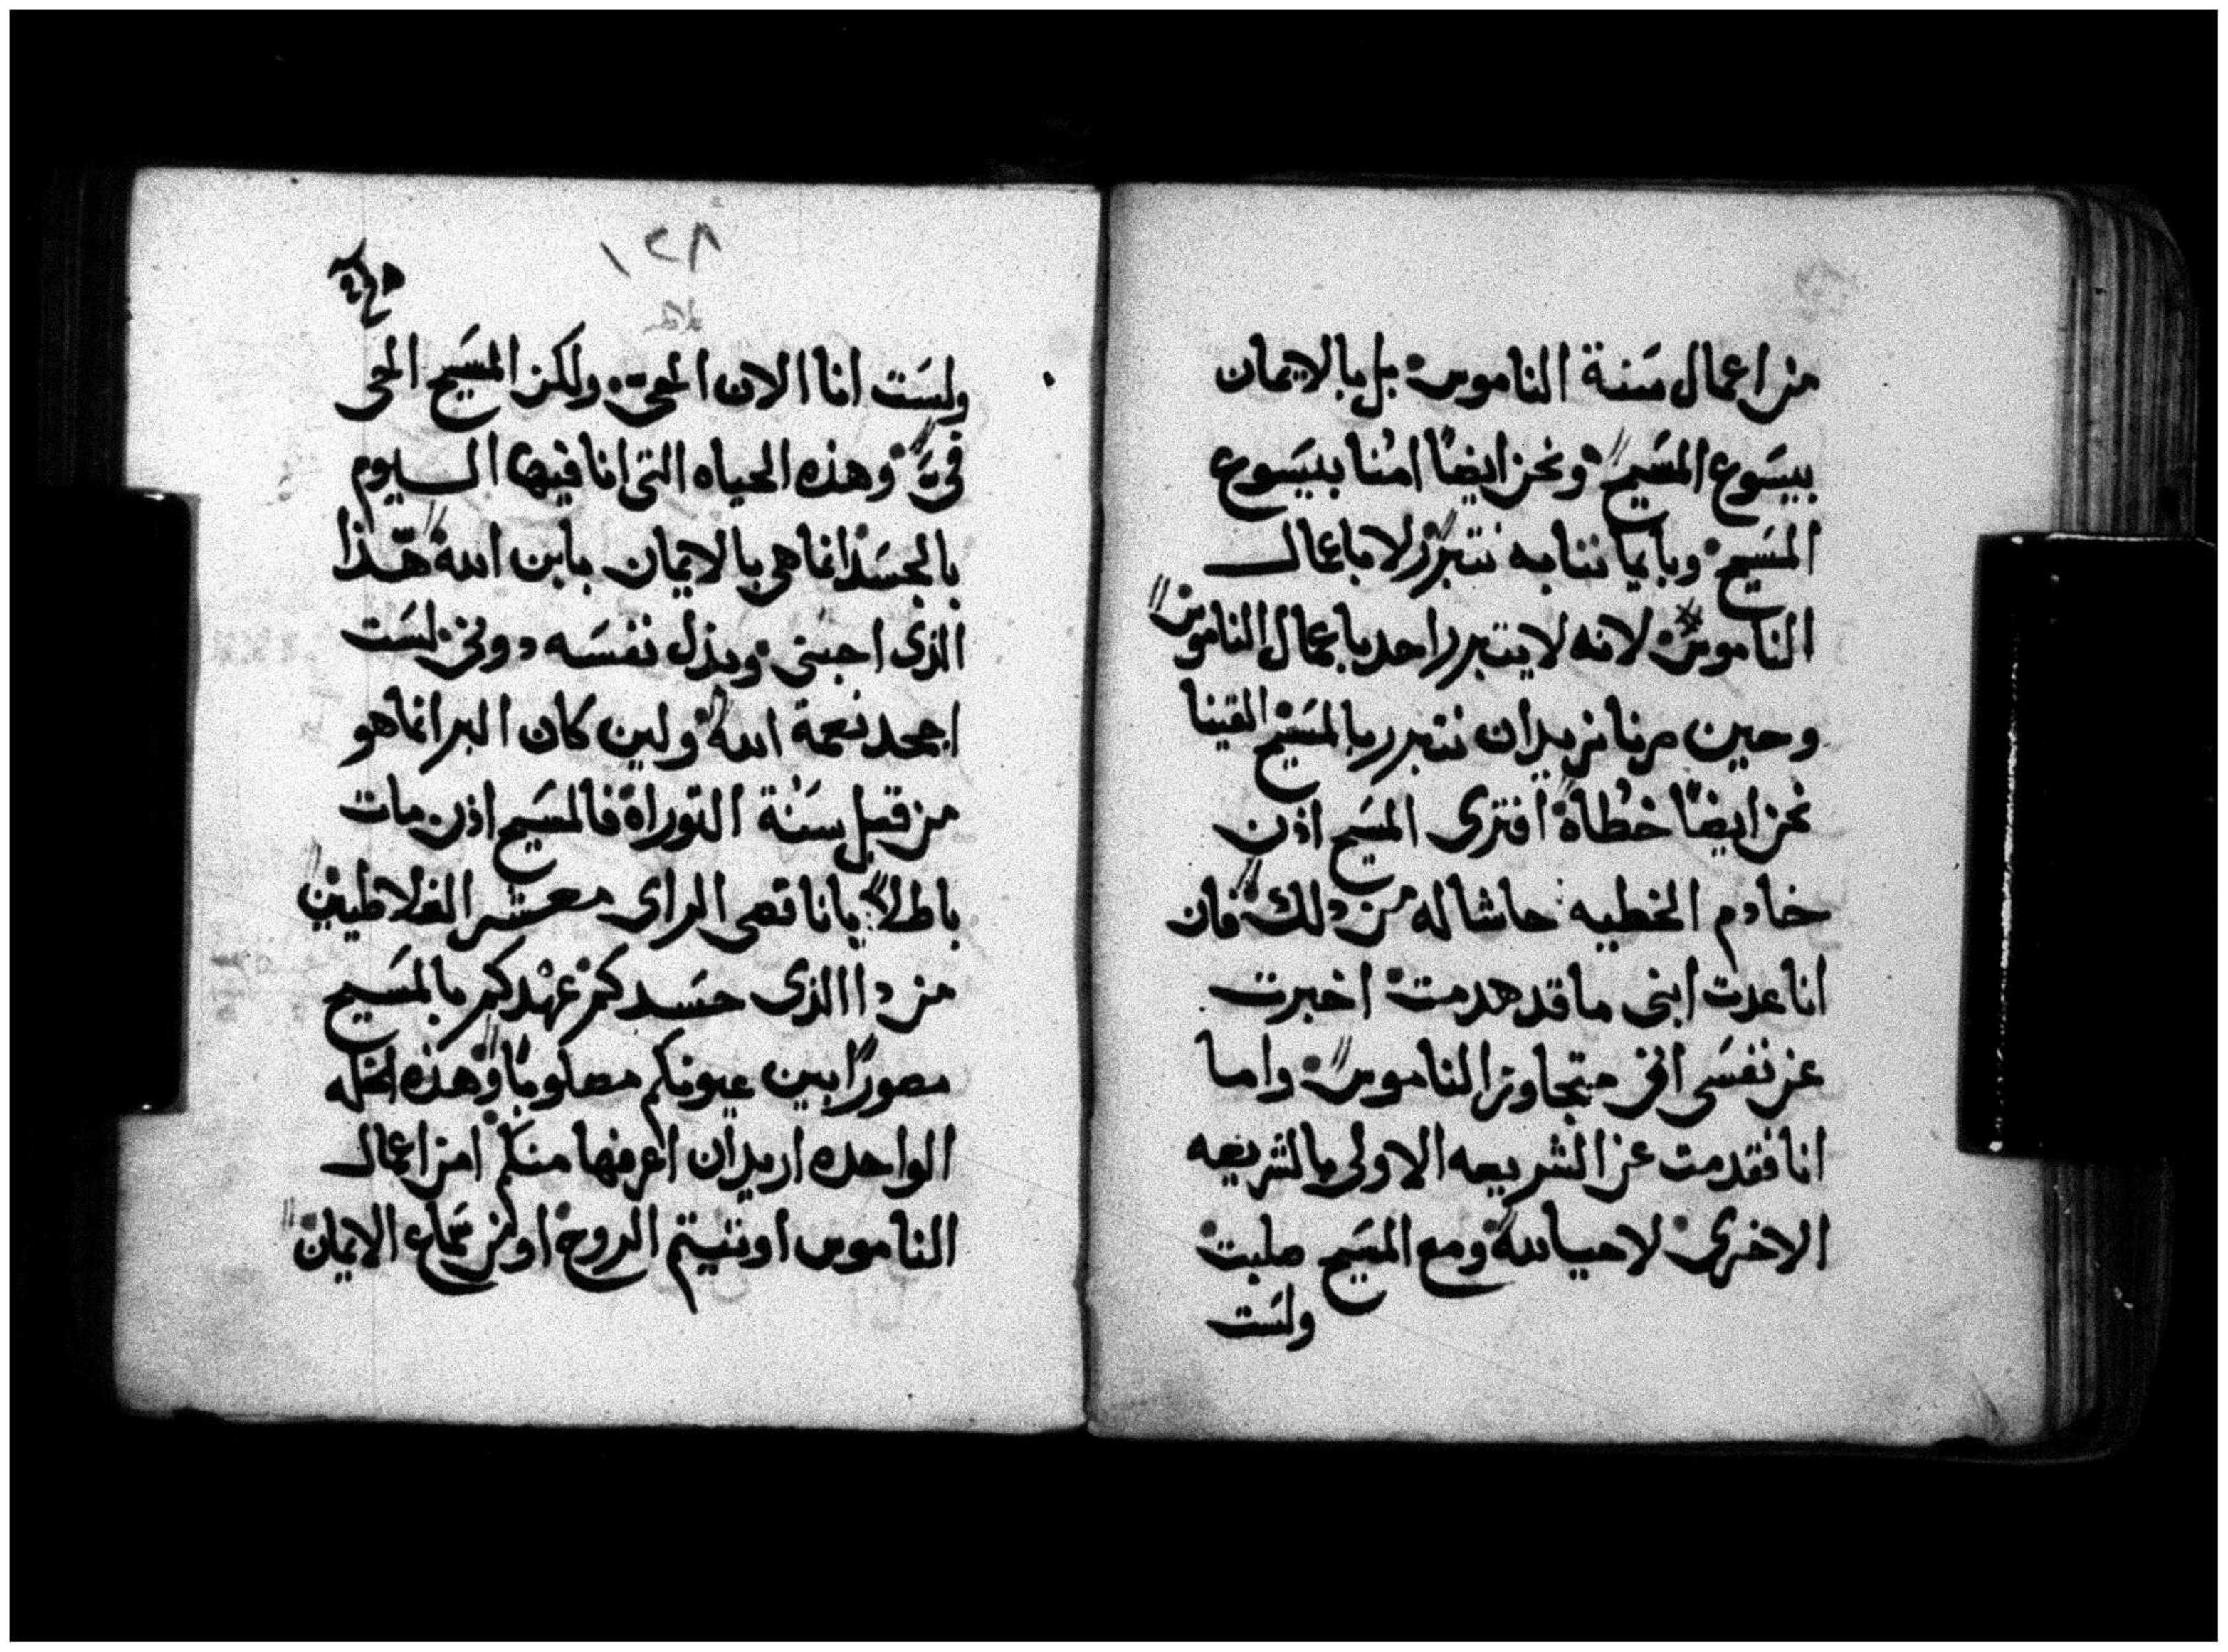 من اعمال سَنة الناموس بل بالايمان
بيسَوع المسَيح ونحن ايضًا امنا بيسَوع
المسَيح وبايماننا به نتبرر لا باعمال
الناموس لانه لا يتبرر احد باعمال الناموس
وحين صرنا نريد ان نتبرر بالمسَيح القينا
نحن ايضًا خطاة افترى المسَيح اذن
خادم الخطيه حاشا له من دلك فان
انا عدت ابنى ما قد هدمت اخبرت
عن نفسَى انى متجاوز الناموس واما
انا فقدمت عن الشريعه الاولى بالشريعه
الاخرى لاحيا لله ومع المسَيح صلبت
ولسَت
١٢٨
ولسَت انا الان الحى ولكن المسَيح الحى
فىَّ وهذه الحياه التى انا فيها اليوم
بالجسَد انما هى بالايمان بابن الله هذا
الذى احبنى وبذل نفسَه دونى لسَت
اجحد نعمة الله ولين كان البر انما هو
من قبل سَنة التوراة فالمسَيح اذن مات
باطلاً يا ناقصى الراى معشر الغلاطيين
من دا الذى حسَدكم عهدكم بالمسَيح
مصورًا بين عيونكم مصلوبًا وهذه الخله
الواحده اريد ان اعرفها منكم امن اعمال
الناموس اوتيتم الروح او من سَماع الايمان